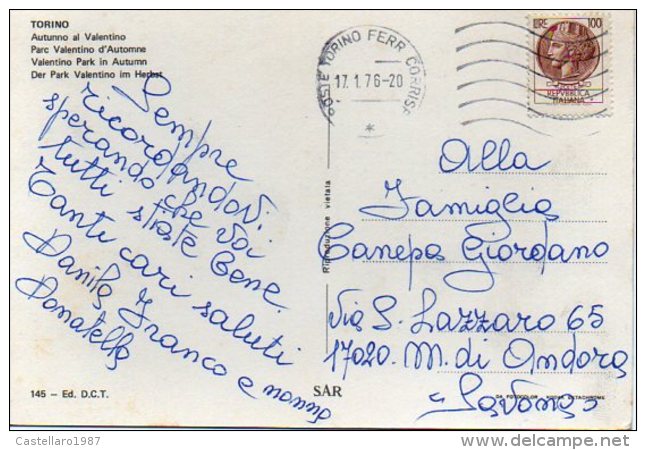 TORINO
Autunno al Valentino
Parc Valentino d'Automne
Valentino Park in Autumn
Der Park Valentino im Herbst
POSTE TORINO FERR. CORRISP.
17.1.76-20
LIRE 100
REPUBBLICA
ITALIANA
Sempre
ricordandoVi
sperando che voi
tutti stiate bene.
Tanti cari saluti
Danila Franco e nonna
Donatella
Riproduzione vietata
Alla
Famiglia
Canepa Giordano
Via S. Lazzaro 65
17020 M. di Andora
"Savona"
145 - Ed. D.C.T.
SAR
DA FOTOCOLOR KODAK EKTACHROME
Castellaro1987
www.delcampe.net